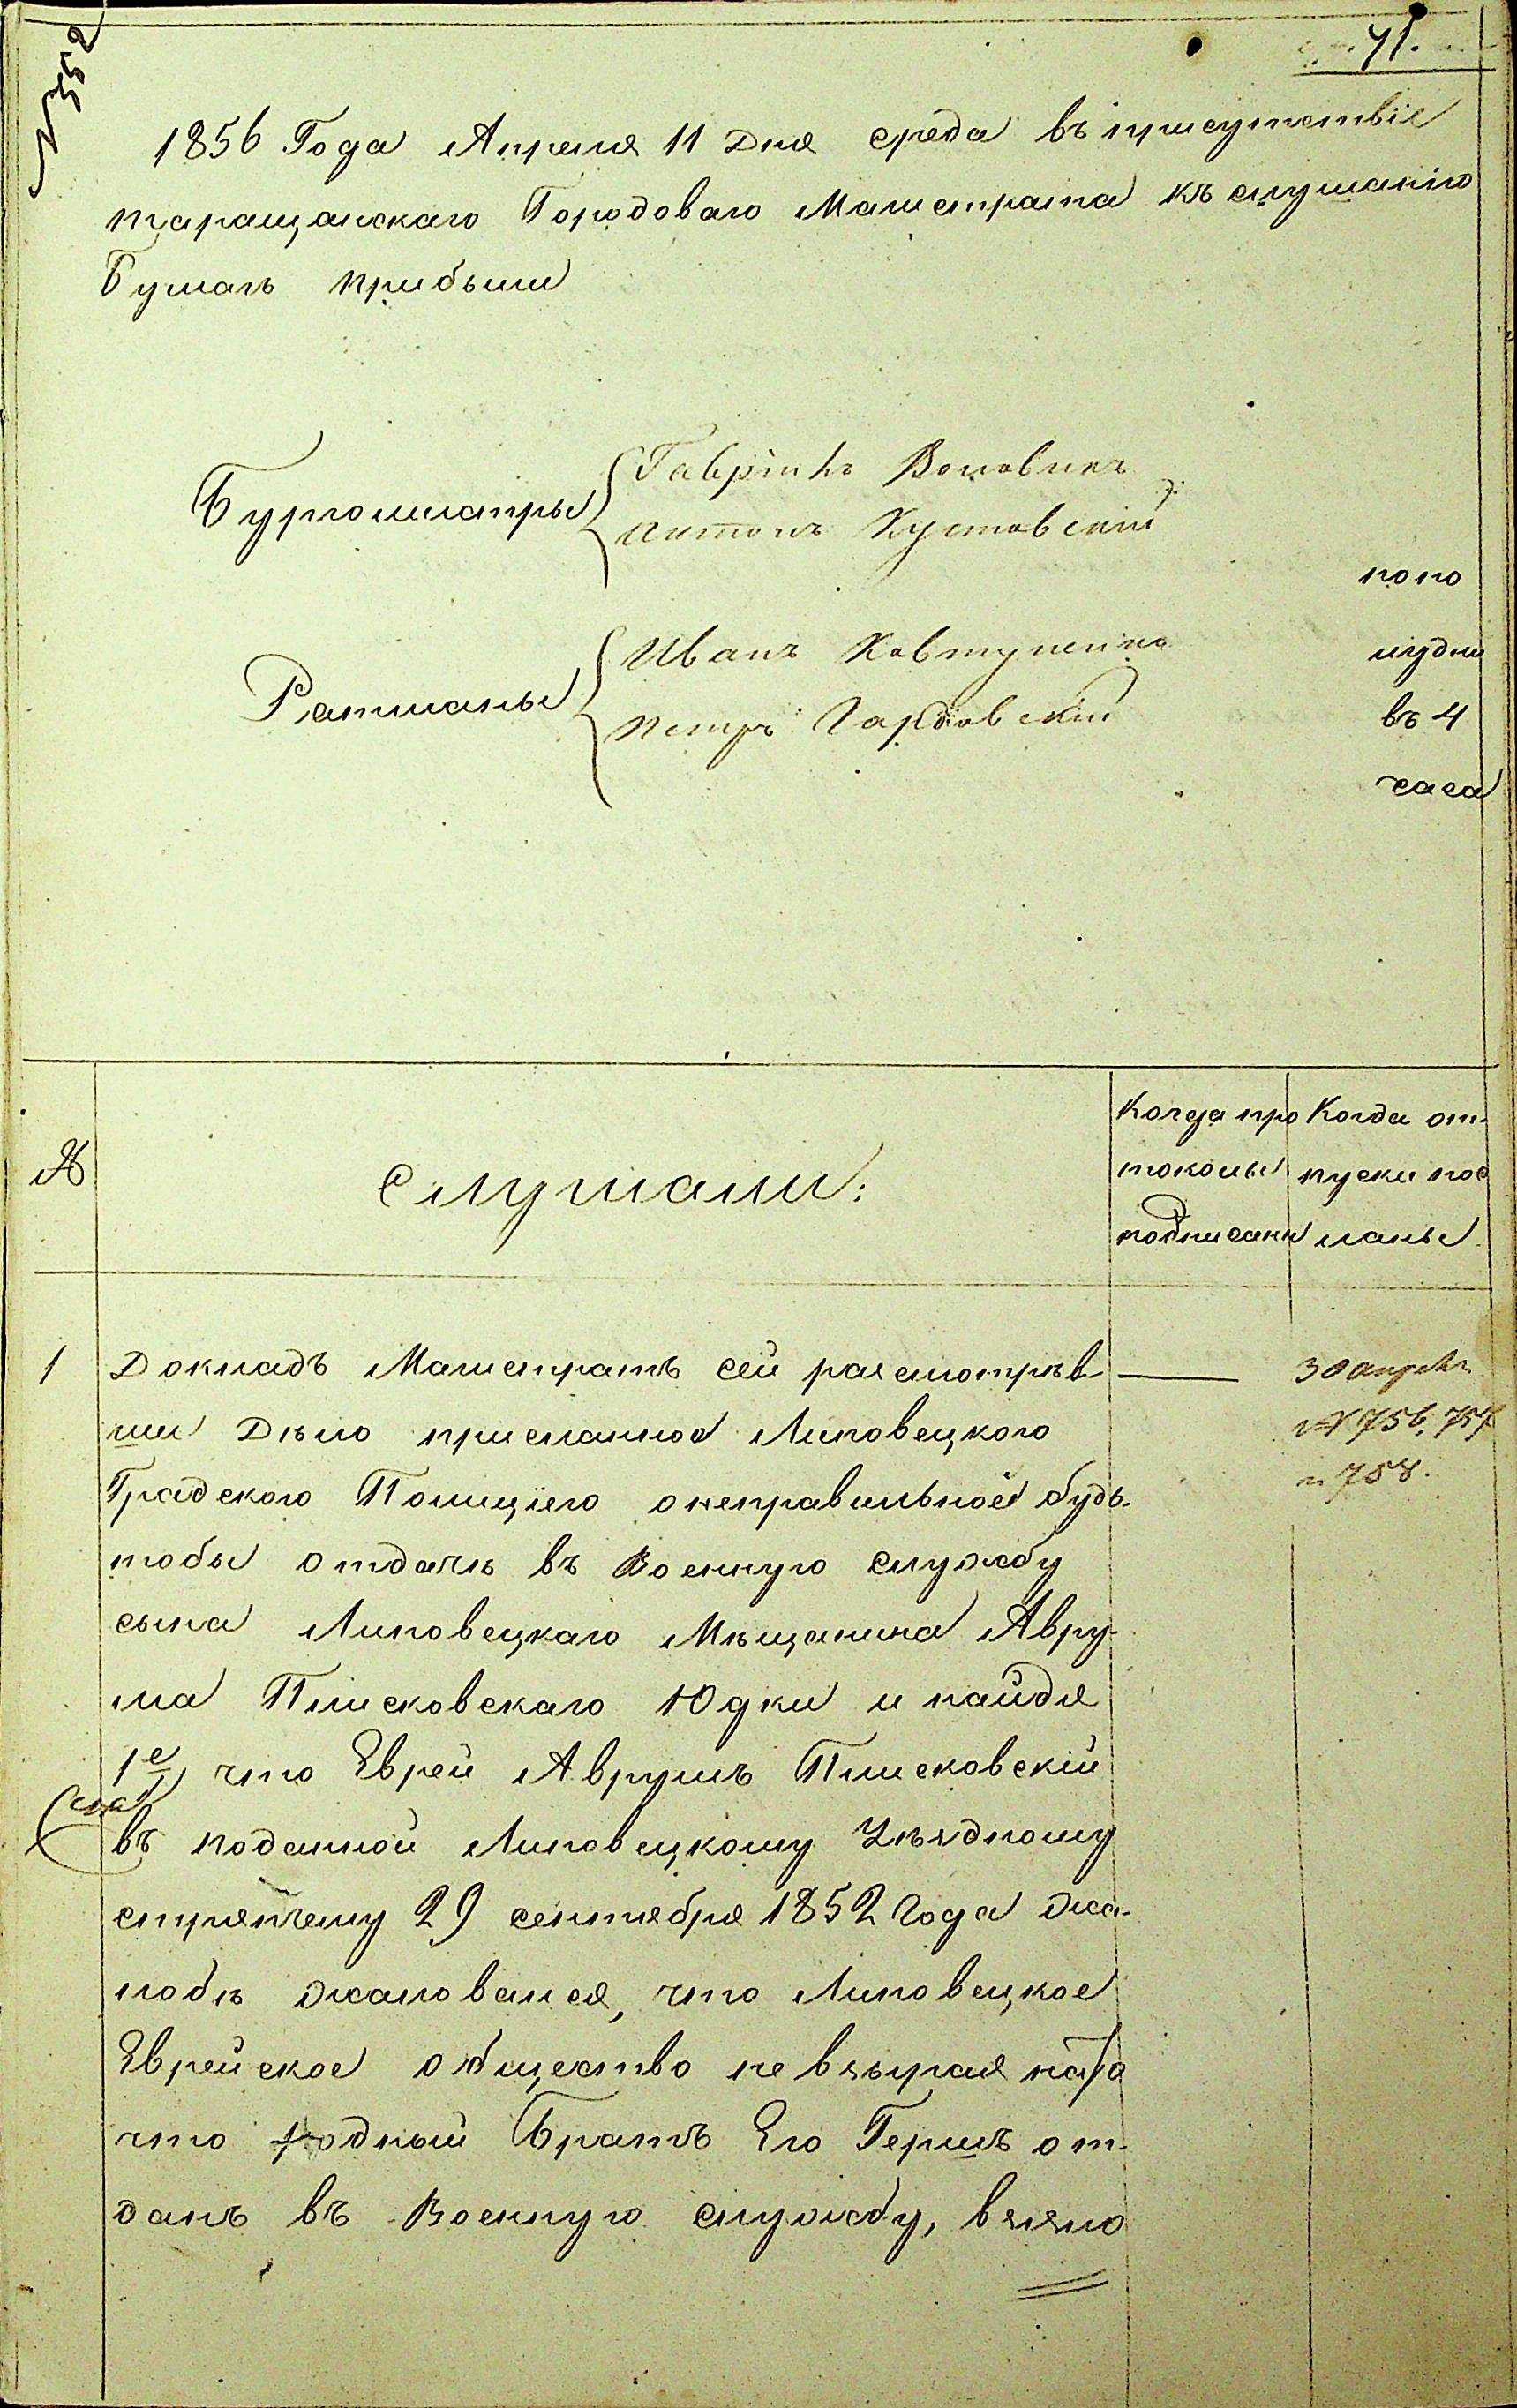 № 552
71.
1856 Года Апреля 11 Дня среда въ присутствіе
таращанскаго Городоваго Магистрата къ слушанію
Бумагъ прибыли
Бургомистры
Гаврінлъ Воловикъ
Антонъ Кустовскій
Ратманы
Иванъ Ковтуненко
Петръ Гарбовскій
попо
лудни
въ 4
часа
№
Слушали:
Когда про
токолы
подписаны
Когда от-
пуски пос
ланы
1
Докладъ Магистратъ сей разсмотрѣв-
ши Дѣло присланное Липовецкого
Градского Полицiего онеправильной будь-
тобы отдачѣ въ Военную службу
сына Липовецкаго Мѣщанина Авру-
ма Плисковскаго Юдки и найдя
1е что Еврей Аврумъ Плисковскій
въ поданной Липовецкому Уѣздному
стряпчему 29 сентября 1852 Года жа-
лобѣ жаловался, что Липовецкое
Еврейское общество не взырая на то
что родный Братъ Его Гершъ от-
данъ въ Военную службу, взяло
30 апрѣля
№ 756, 757
и 758.